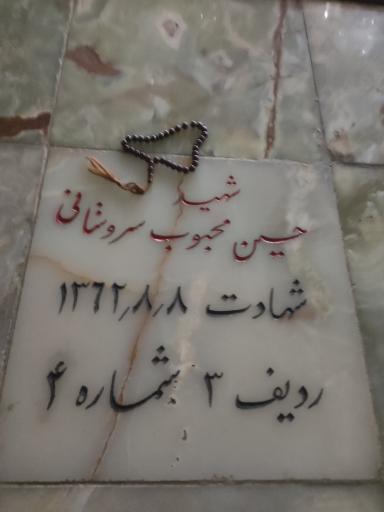 شهید
حسین محبوب سروستانی
شهادت ۱۳۶۲٫۸٫۸
ردیف ۳ شماره ۴